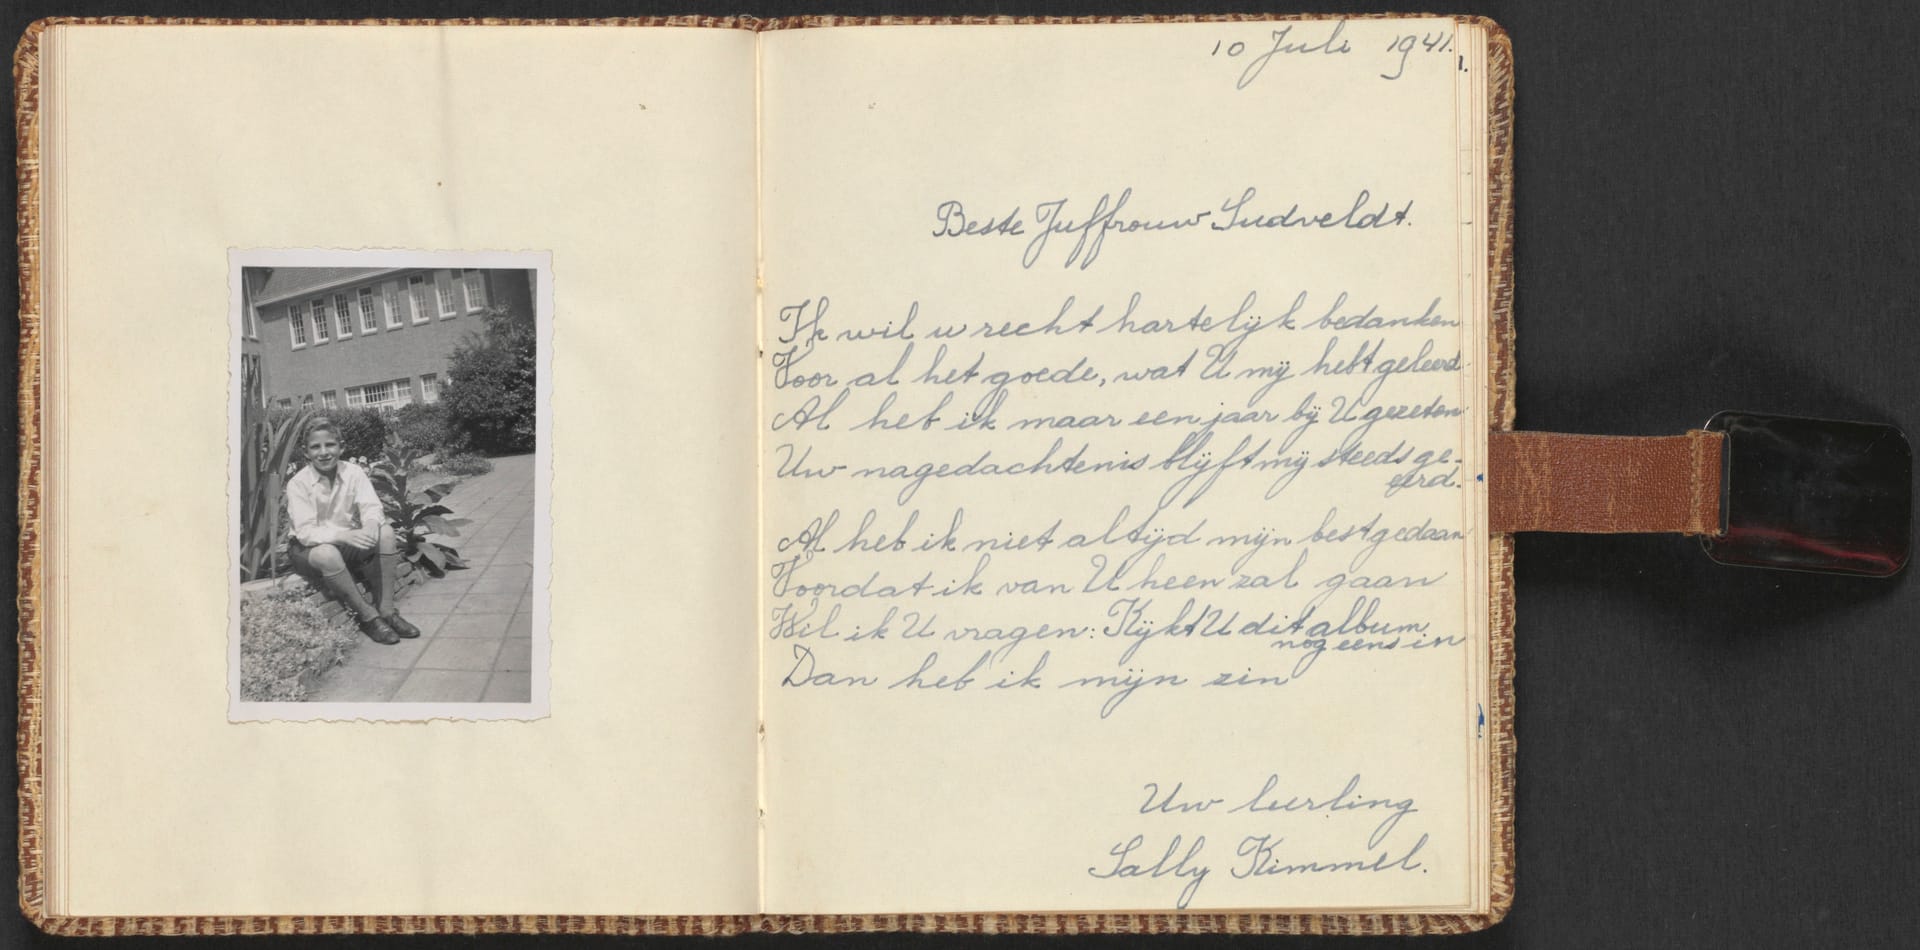 10 Juli 1941.
1.
Beste Juffrouw Sudveldt.
Ik wil u recht hartelijk bedanken
Voor al het goede, wat U mij hebt geleerd
Al heb ik maar een jaar bij U gezeten
Uw nagedachtenis blijft mij steeds ge-
eerd.
Al heb ik niet altijd mijn best gedaan
Voordat ik van U heen zal gaan
Wil ik U vragen: Kijkt U dit album
nog eens in
Dan heb ik mijn zin
Uw leerling
Sally Kimmel.